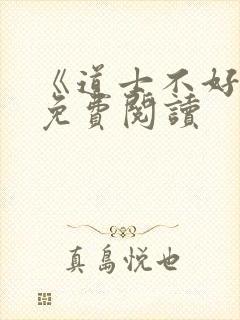 《道士不好
免費閱讀
真島悅也